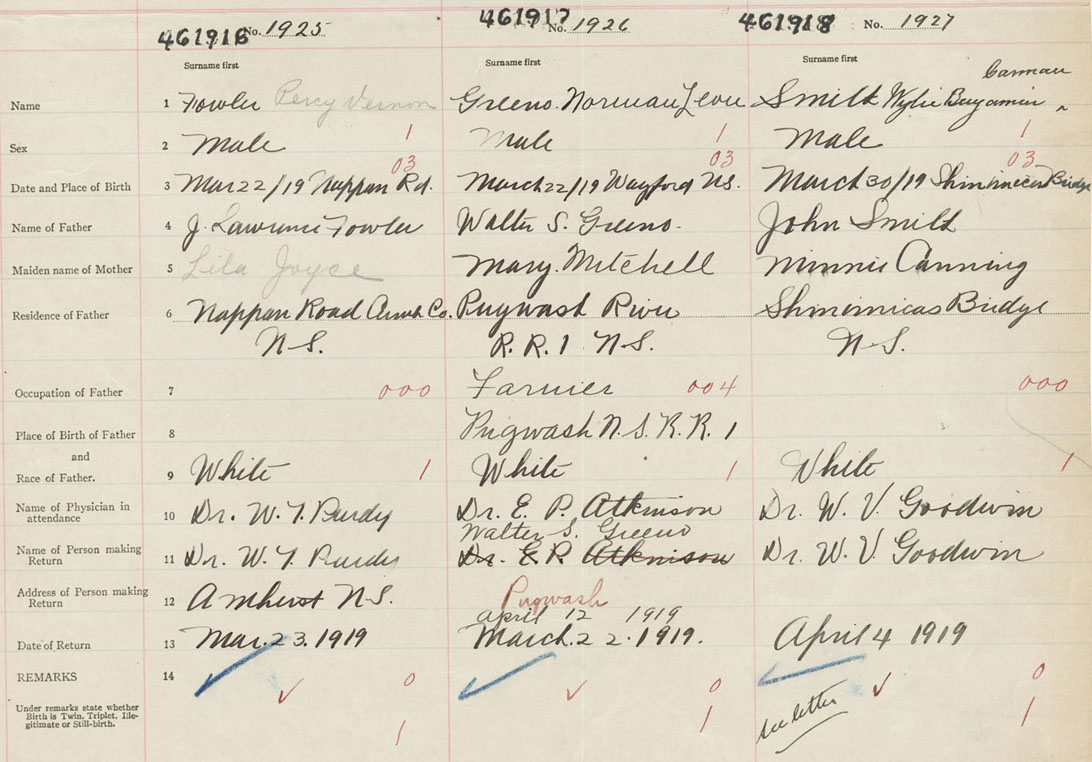 461916 No. 1925 461917 No. 1926 461918 No. 1927
Surname first Surname first Surname first
Carman
Name 1 Fowler Percy Vernon Greeno. Norman Smith Wylie Benjamin ^
1 1 1
Sex 2 Male Male Male
03 03 03
Date and Place of Birth 3 Mar 22/19 Nappan Rd. March 22/19 Wayford N.S. March 30/19 Shinimicas Bridge
Name of Father 4 J. Lawrence Fowler Walter S. Greeno. John Smith
Maiden name of Mother 5 Lila Joyce Mary. Mitchell Minnie Canning
Residence of Father 6 Nappan Road Co. Pugwash River Shinimicas Bridge
N.S. R.R.1 N.S. N.S.
Occupation of Father 7 000 Farmer 004 000
Place of Birth of Father 8 Pugwash N.S. R.R. 1
and
Race of Father. 9 White 1 White 1 White 1
Name of Physician in
attendance 10 Dr. W. T. Purdy Dr. E. P. Atkinson Dr. W. V. Goodwin
Walter S. Greeno
Name of Person making
Return 11 Dr. W. T. Purdy Dr. E. P. Atkinson Dr. W. V. Goodwin
Address of Person making
Return 12 Amherst N.S. Pugwash
April 12 1919
Date of Return 13 Mar. 23. 1919 March. 22. 1919. April 4 1919
REMARKS 14 0 0 0
Under remarks state whether
Birth is Twin, Triplet, Ille-
gitimate or Still-birth.
1 1 see letter 1